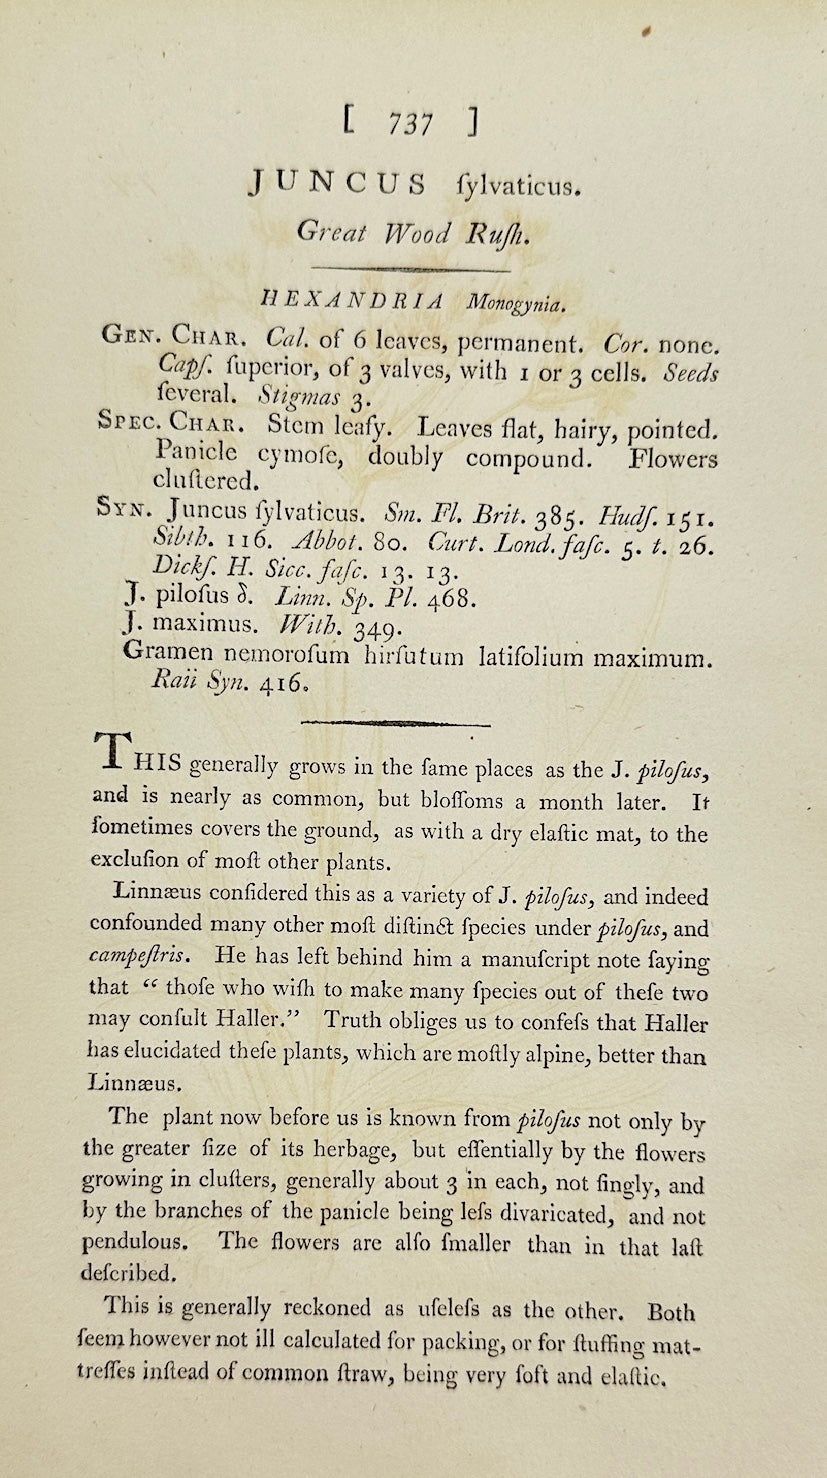 [ 737 ]
JUNCUS ſylvaticus.
Great Wood Ruſh.
HEXANDRIA Monogynia.
GEN. CHAR. Cal. of 6 leaves, permanent. Cor. none.
Capſ. ſuperior, of 3 valves, with 1 or 3 cells. Seeds
ſeveral. Stigmas 3.
SPEC. CHAR. Stem leafy. Leaves flat, hairy, pointed.
Panicle cymoſe, doubly compound. Flowers
cluſtered.
SYN. Juncus ſylvaticus. Sm. Fl. Brit. 385. Hudſ. 151.
Sibth. 116. Abbot. 80. Curt. Lond. faſc. 5. t. 26.
Dickſ. H. Sicc. faſc. 13. 13.
J. piloſus δ. Linn. Sp. Pl. 468.
J. maximus. With. 349.
Gramen nemoroſum hirſutum latifolium maximum.
Raii Syn. 416.
THIS generally grows in the ſame places as the J. piloſus,
and is nearly as common, but bloſſoms a month later. It
ſometimes covers the ground, as with a dry elaſtic mat, to the
excluſion of moſt other plants.
Linnæus conſidered this as a variety of J. piloſus, and indeed
confounded many other moſt diſtinct ſpecies under piloſus, and
campeſtris. He has left behind him a manuſcript note ſaying
that “ thoſe who wiſh to make many ſpecies out of theſe two
may conſult Haller.” Truth obliges us to confeſs that Haller
has elucidated theſe plants, which are moſtly alpine, better than
Linnæus.
The plant now before us is known from piloſus not only by
the greater ſize of its herbage, but eſſentially by the flowers
growing in cluſters, generally about 3 in each, not ſingly, and
by the branches of the panicle being leſs divaricated, and not
pendulous. The flowers are alſo ſmaller than in that laſt
deſcribed.
This is generally reckoned as uſeleſs as the other. Both
ſeem however not ill calculated for packing, or for ſtuffing mat-
treſſes inſtead of common ſtraw, being very ſoft and elaſtic.